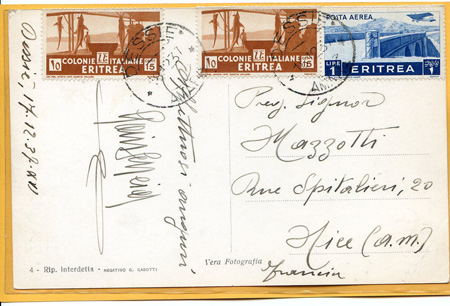 10 COLONIE ITALIANE 15
ERITREA
10 COLONIE ITALIANE 15
ERITREA
POSTA AEREA
LIRE 1 1
ERITREA
Dessiè, 17.12.37.XVI
Affettuosi auguri
Preg. Signor
Mazzotti
Rue Spitalieri, 20
Nice (a.m.)
Francia
4 - Rip. interdetta - NEGATIVO G. GAROTTI
Vera Fotografia